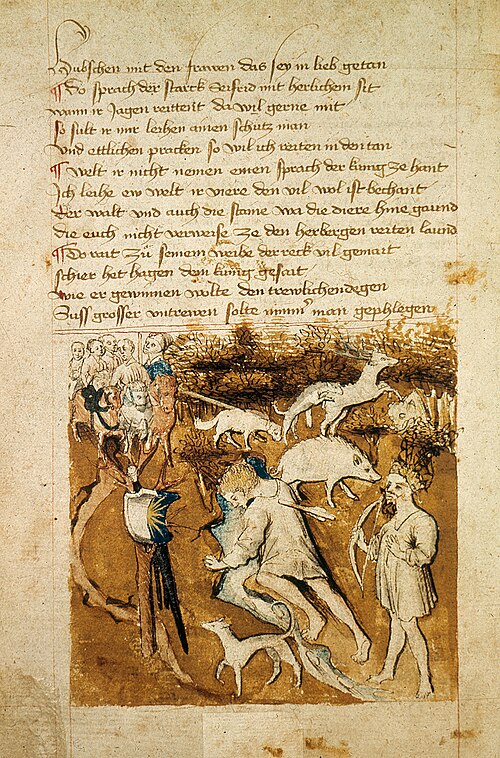 Hubschen mit den frawen das sey in lieb getan
¶ Do sprach der starck Seifrid mit herlichem sit
wann ir Jagen reittent da wil gerne mit
so sult ir mir leihen ainen schutz man
Vnd ettlichen pracken so wil ich reiten in den tan
¶ Welt ir nicht nemen einen sprach der kunig ze hant
Ich leihe ew welt ir viere den vil wol ist bechant
Der walt vnd auch die staine wa die diere hine gaund
die euch nicht verweise ze den herbergen reiten laund
¶ Do rait zů seinem weibe der reck vil gemait
schier het hagen dem kunig gesait
wie er gewinnen wolte den trewlichen degen
Suss grosser vntrewen solte nimmer man gephlegen